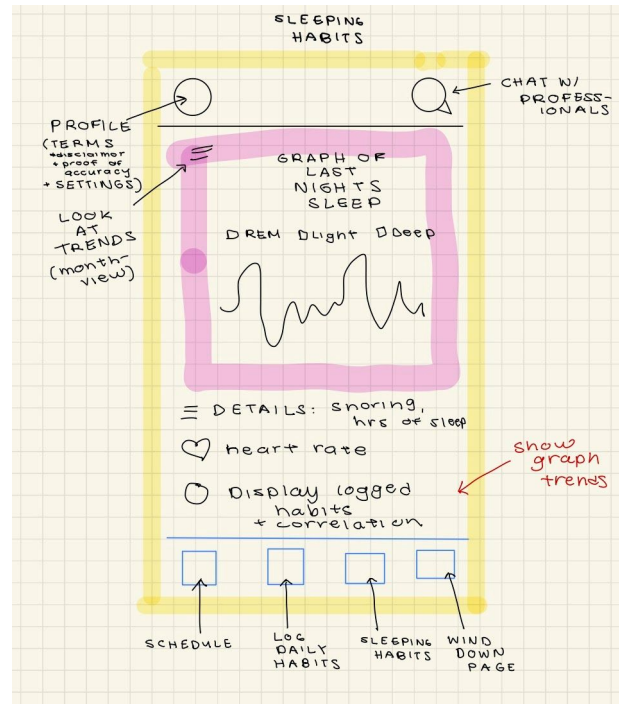 SLEEPING
HABITS
CHAT W/
PROFESS-
IONALS
PROFILE
(TERMS
+disclaimor
+ proof of
accuracy
+ SETTINGS)
LOOK
AT
TRENDS
(month-
view)
GRAPH OF
LAST
NIGHTS
SLEEP
REM Light Deep
DETAILS: snoring,
hrs of sleep
heart rate
Display logged
habits
+ correlation
show
graph
trends
SCHEDULE
LOG
DAILY
HABITS
SLEEPING
HABITS
WIND
DOWN
PAGE